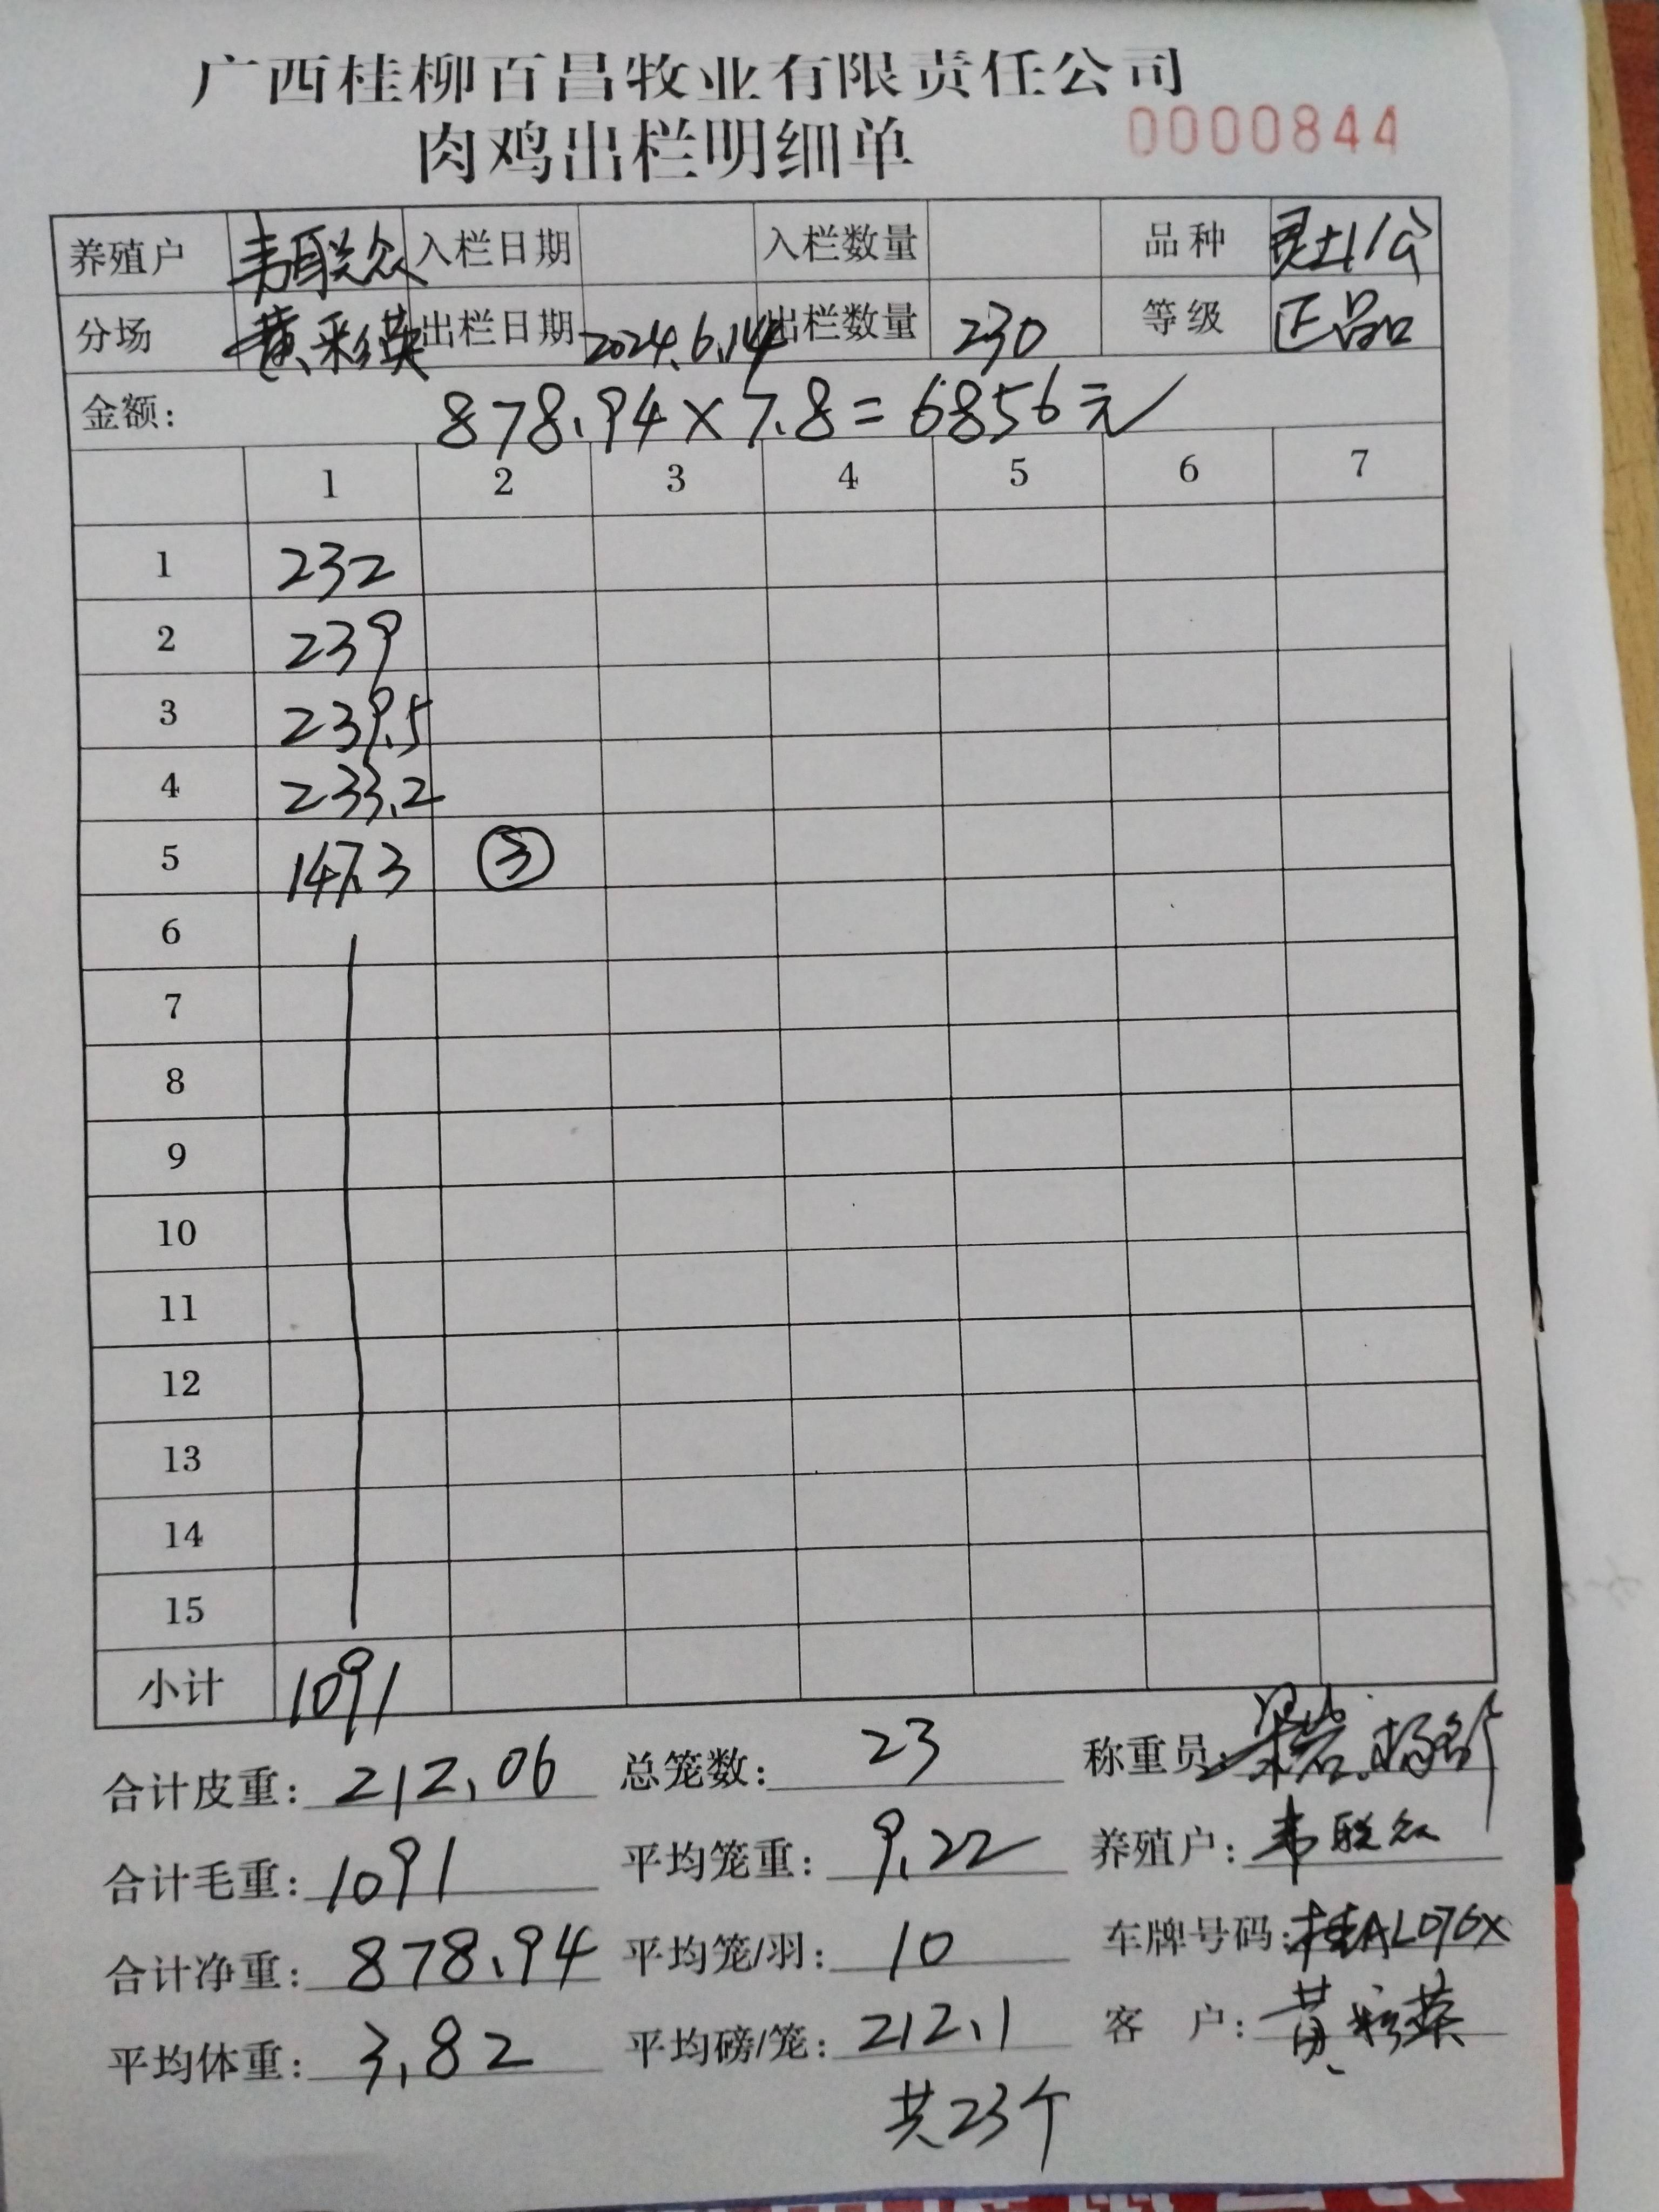 广西桂柳百昌牧业有限责任公司
肉鸡出栏明细单 0000844
养殖户 韦联众 入栏日期 入栏数量 品种 灵土1/公
分场 黄彩英 出栏日期 2024.6.14 出栏数量 230 等级 正品
金额: 878.94×7.8=6856元
1 2 3 4 5 6 7
1 232
2 239
3 239.5
4 233.2
5 147.3 ③
6
7
8
9
10
11
12
13
14
15
小计 1091
合计皮重: 212.06 总笼数: 23 称重员:
合计毛重: 1091 平均笼重: 9.22 养殖户: 韦联众
合计净重: 878.94 平均笼/羽: 10 车牌号码: 桂AL076X
平均体重: 3.82 平均磅/笼: 212.1 客 户: 黄彩英
共23个